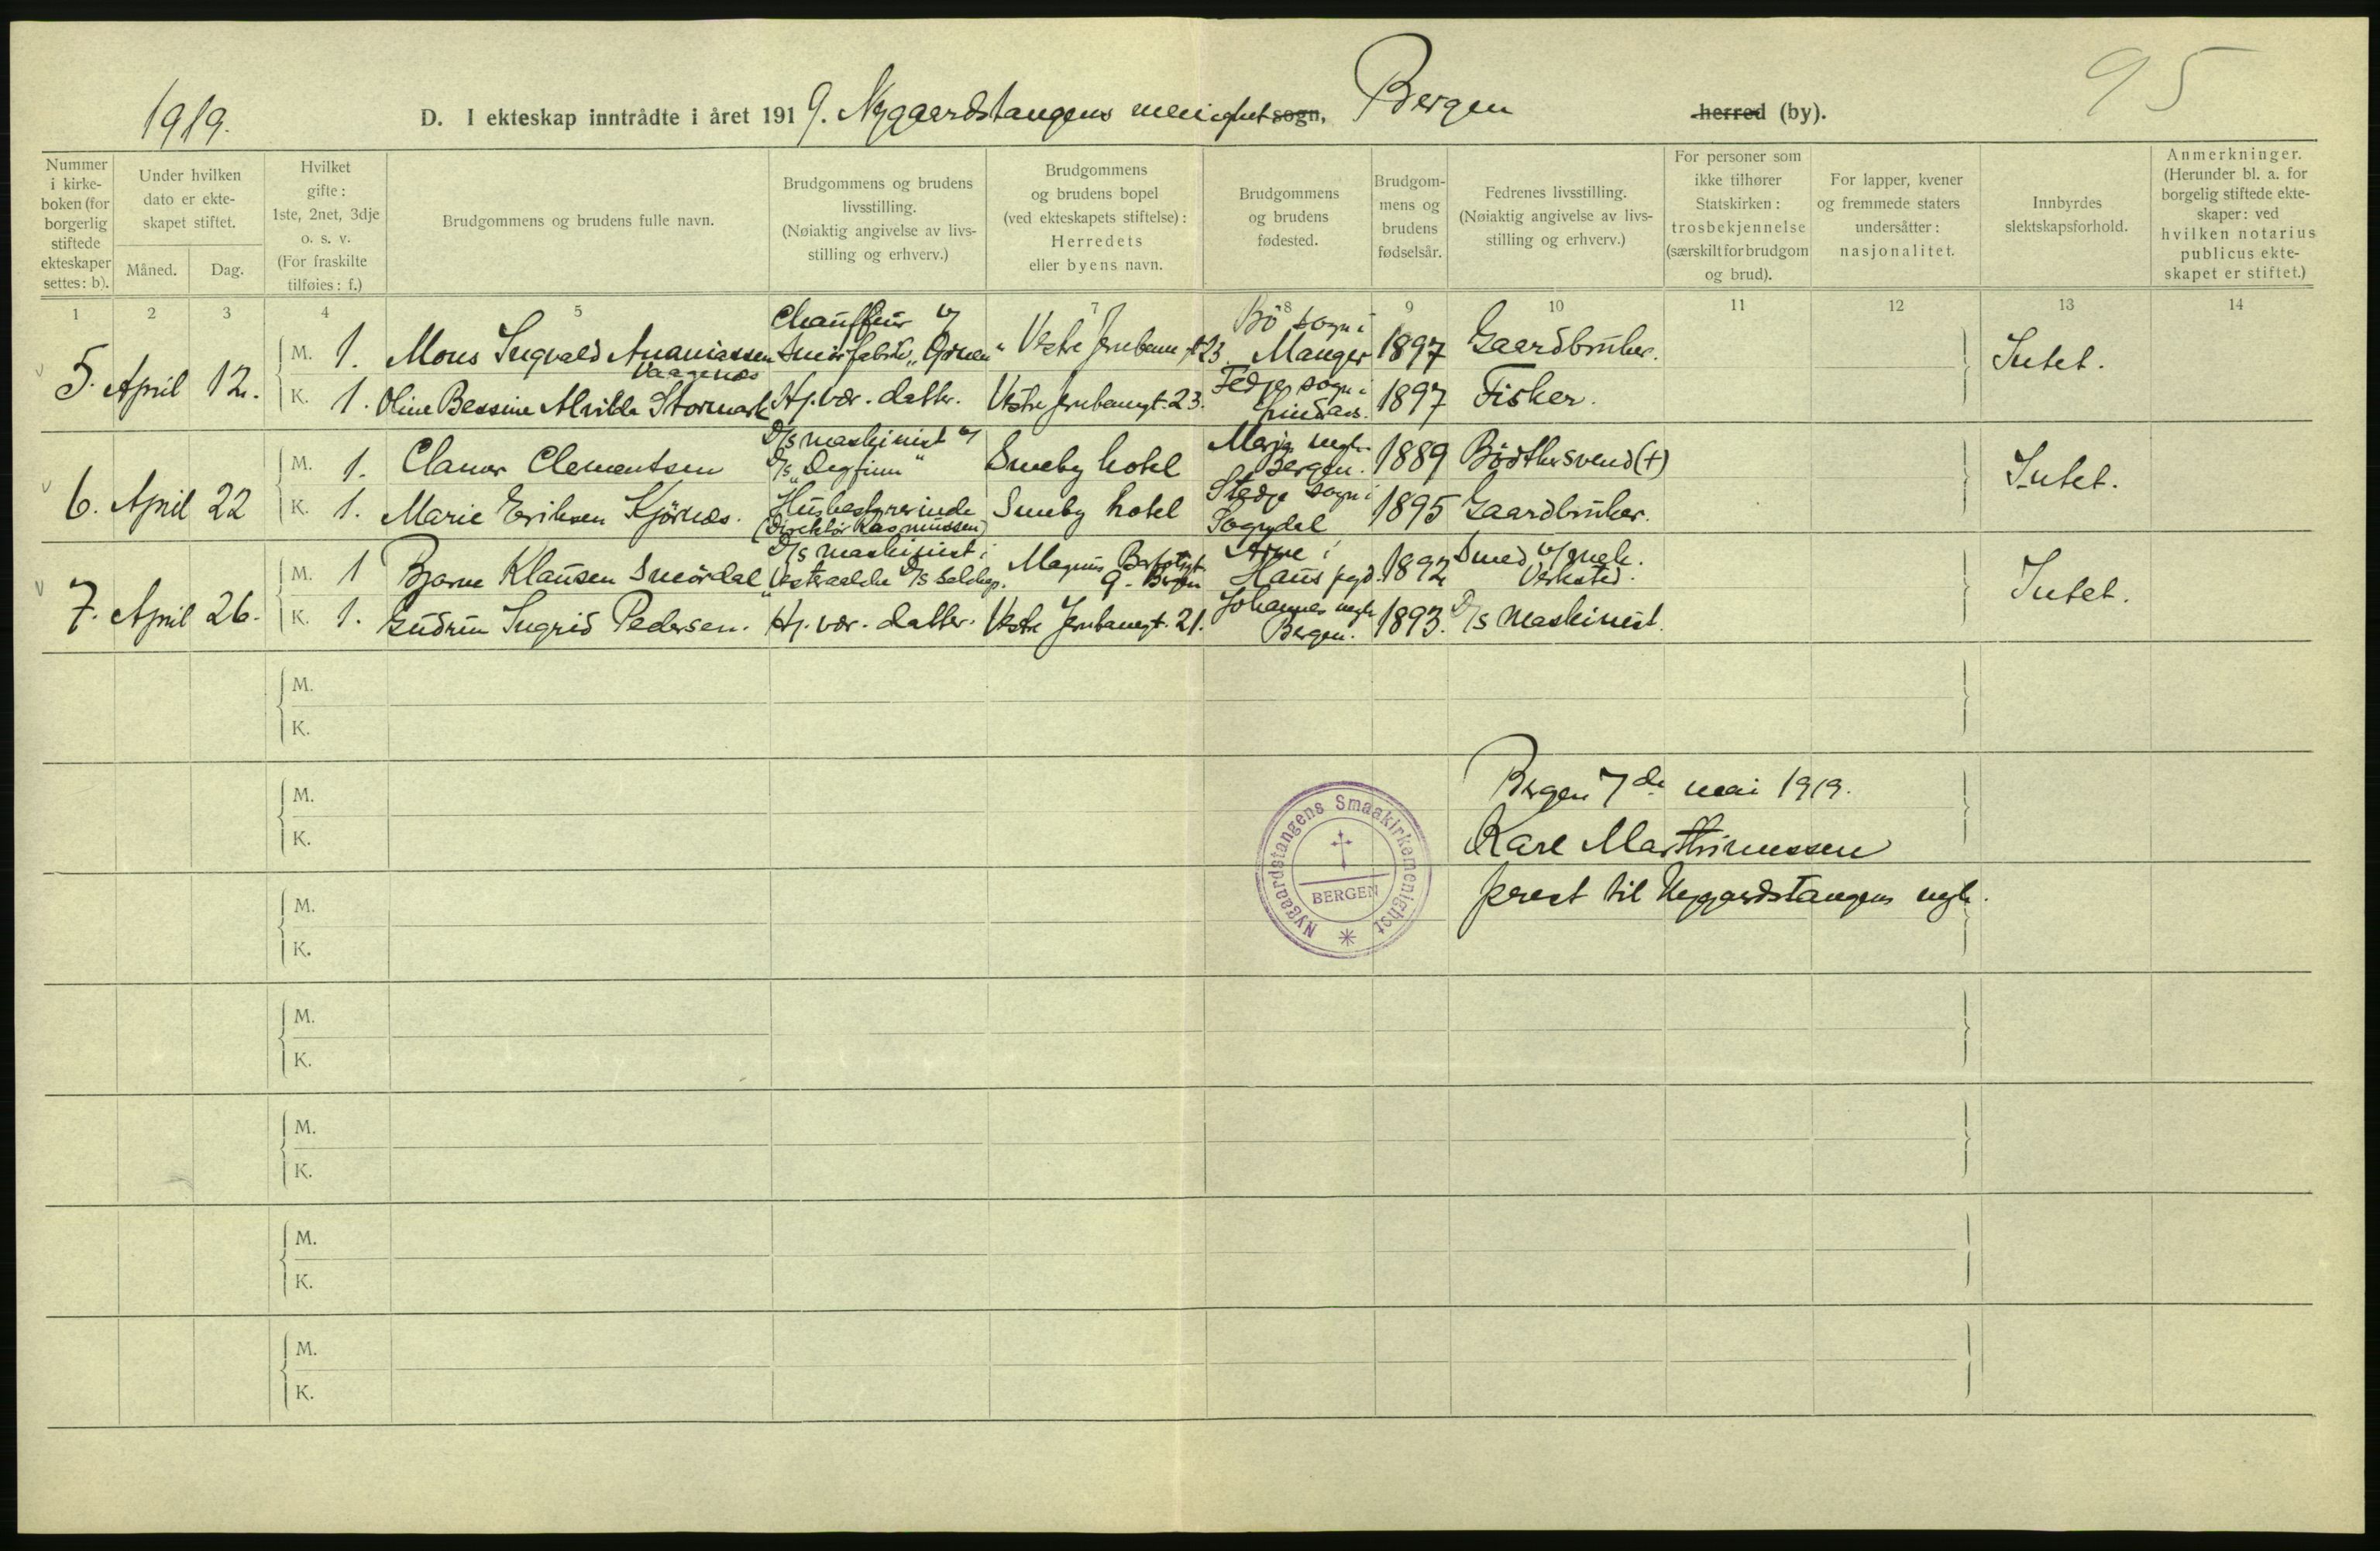 1919.
95
D. I ekteskap inntrådte i året 1919. Nygaardstangens menighet sogn, Bergen herred (by).
Nummer i kirke-boken (for borgerlig stiftede ekteskaper settes: b).
Under hvilken dato er ekte-skapet stiftet.
Måned. Dag.
Hvilket gifte: 1ste, 2net, 3dje o. s. v. (For fraskilte tilføies: f.)
Brudgommens og brudens fulle navn.
Brudgommens og brudens livsstilling. (Nøiaktig angivelse av livs-stilling og erhverv.)
Brudgommens og brudens bopel (ved ekteskapets stiftelse): Herredets eller byens navn.
Brudgommens og brudens fødested.
Brudgom-mens og brudens fødselsår.
Fedrenes livsstilling. (Nøiaktig angivelse av livs-stilling og erhverv.)
For personer som ikke tilhører Statskirken: trosbekjennelse (særskilt for brudgom og brud).
For lapper, kvener og fremmede staters undersåtter: nasjonalitet.
Innbyrdes slektskapsforhold.
Anmerkninger. (Herunder bl. a. for borgelig stiftede ekte-skaper: ved hvilken notarius publicus ekte-skapet er stiftet.)
1 2 3 4 5 7 8 9 10 11 12 13 14
5. April 12. M. 1. Mons Ingvald Ananiassen Vaagenes Chauffeur v/ Smörfabrik "Örnen" Vestre Jernbanegt 23. Bö sogn i Manger 1897 Gaardbruker. Intet.
K. 1. Oline Bessine Alvilde Stormark Hj. vær. datter. Vestre Jernbanegt. 23. Fedje sogn i Lindaas. 1897 Fisker.
6. April 22 M. 1. Clamer Clementsen D/s maskinist v/ D/s "Dagfinn" Smeby hotel Maria mgh. Bergen. 1889 Bödkersvend (+) Intet.
K. 1. Marie Eriksen Kjörnes. Husbestyrerinde (Direktör Rasmussen) Smeby hotel Stedje sogn i Sogndal 1895 Gaardbruker.
7. April 26. M. 1 Bjarne Klausen Smördal D/s maskinist i Vesteraalske D/s selskap. Magnus Barfotsgt. 9. Bergen Arne i Haus pgd. 1892 Smed v/ mek. Verksted. Intet.
K. 1. Gudrun Ingrid Pedersen. Hj. vær. datter. Vestre Jernbanegt. 21. Johannes mgh Bergen. 1893. D/s Maskinist.
M.
K.
M.
K.
Bergen 7de mai 1919.
Karl Marthinussen
prest til Nygaardstangens mgh.
Nygaardstangens Smaakirkemenighet
BERGEN
M.
K.
M.
K.
M.
K.
M.
K.
M.
K.